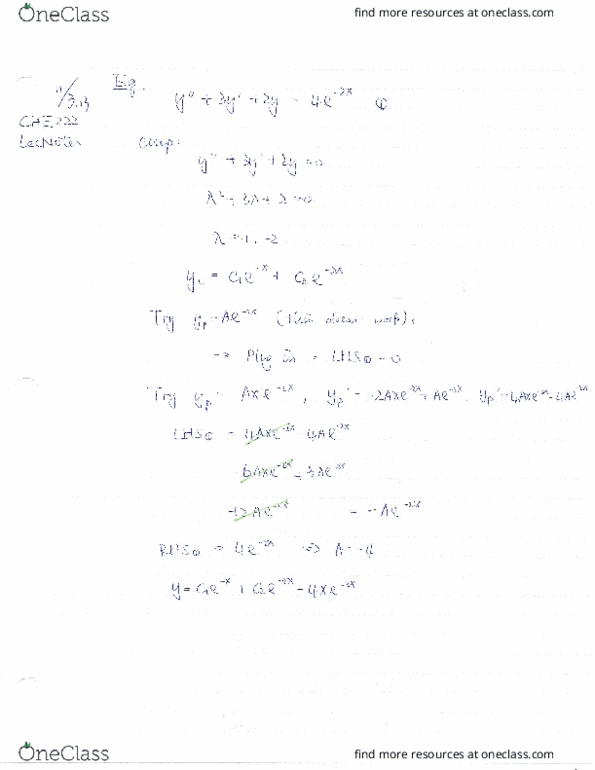 OneClass
find more resources at oneclass.com
Eg.
y'' + 3y' + 2y = 4e^-2x ①
11/3.13
CHE222
LecNotes
Comp:
y'' + 3y' + 2y = 0
λ² + 3λ + 2 = 0
λ = -1, -2
y_c = C₁e^-x + C₂e^-2x
Try y_p = Ae^-2x (this doesn't work).
→ Plug in = LHS① = 0
Try y_p = Axe^-2x, y_p' = -2Axe^-2x + Ae^-2x y_p'' = 4Axe^-2x - 4Ae^-2x
LHS① = 4Axe^-2x - 4Ae^-2x
6Axe^-2x 3Ae^-2x
= -Ae^-2x
RHS① = 4e^-2x => A = -4
y = C₁e^-x + C₂e^-2x - 4xe^-2x
OneClass
find more resources at oneclass.com